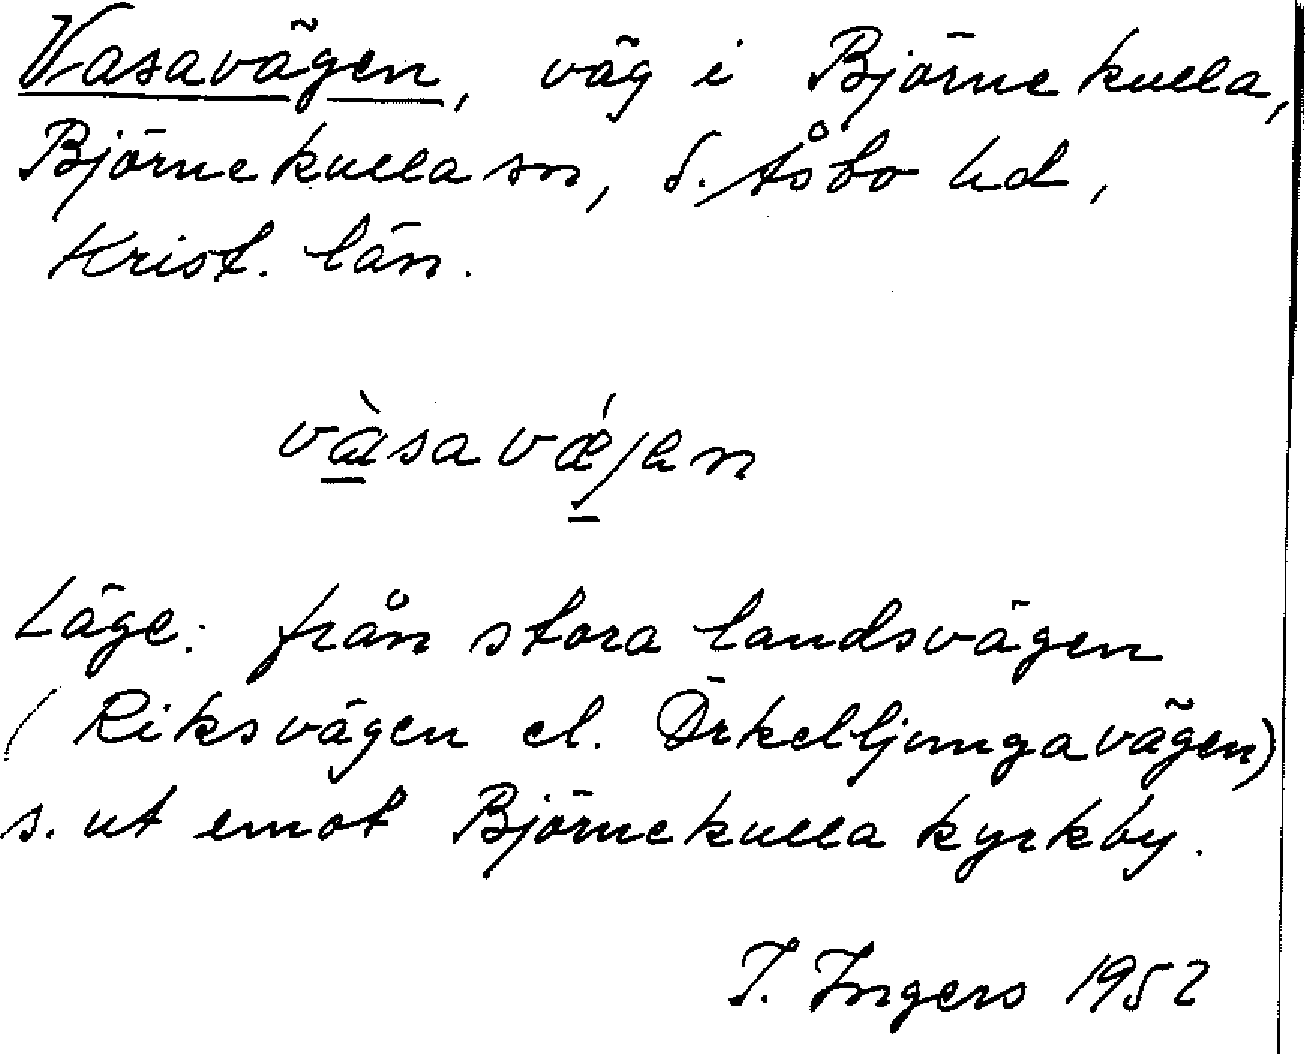 Vasavägen, väg i Björnekulla,
Björnekulla sn, S. Åsbo hd,
Krist. län.
vàsavǽjen
Läge: från stora landsvägen
(Riksvägen el. Örkelljungavägen)
s. ut emot Björnekulla kyrkby.
I. Ingers 1952